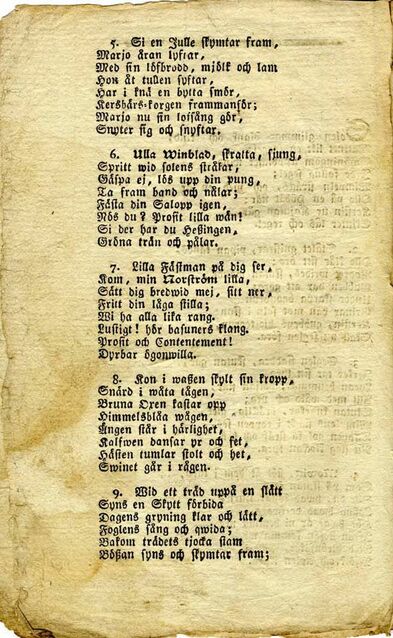 5. Si en Julle skymtar fram,
Marjo åran lyftar,
Med sin löfbrödd, mjölk och lam
Hon åt tullen syftar,
Har i knä en bytta smör,
Kersbärs-korgen frammanför;
Marjo nu sin lossång gör,
Snyter sig och snyftar.
6. Ulla Winblad, skratta, sjung,
Spritt wid solens stråkar,
Gäspa ej, lös upp din pung,
Ta fram band och nålar;
Fästa din Salopp igen,
Nös du? Prosit lilla wän!
Si der har du Heßingen,
Gröna trän och pålar.
7. Lilla Fästman på dig ser,
Kom, min Norström lilla,
Sätt dig bredwid mej, sitt ner,
Fritt din låga stilla;
Wi ha alla lika rang.
Lustigt! hör basuners klang.
Prosit och Contentement!
Dyrbar ögonwilla.
8. Kon i waßen skylt sin kropp,
Snärd i wåta tågen,
Bruna Oxen kastar opp
Himmelsblåa wågen,
Ången står i härlighet,
Kalfwen dansar yr och fet,
Hästen tumlar stolt och het,
Swinet går i rågen.
9. Wid ett träd uppå en slätt
Syns en Skytt förbida
Dagens gryning klar och lätt,
Foglens sång och qwida;
Bakom trädets tjocka stam
Bößan syns och skymtar fram;